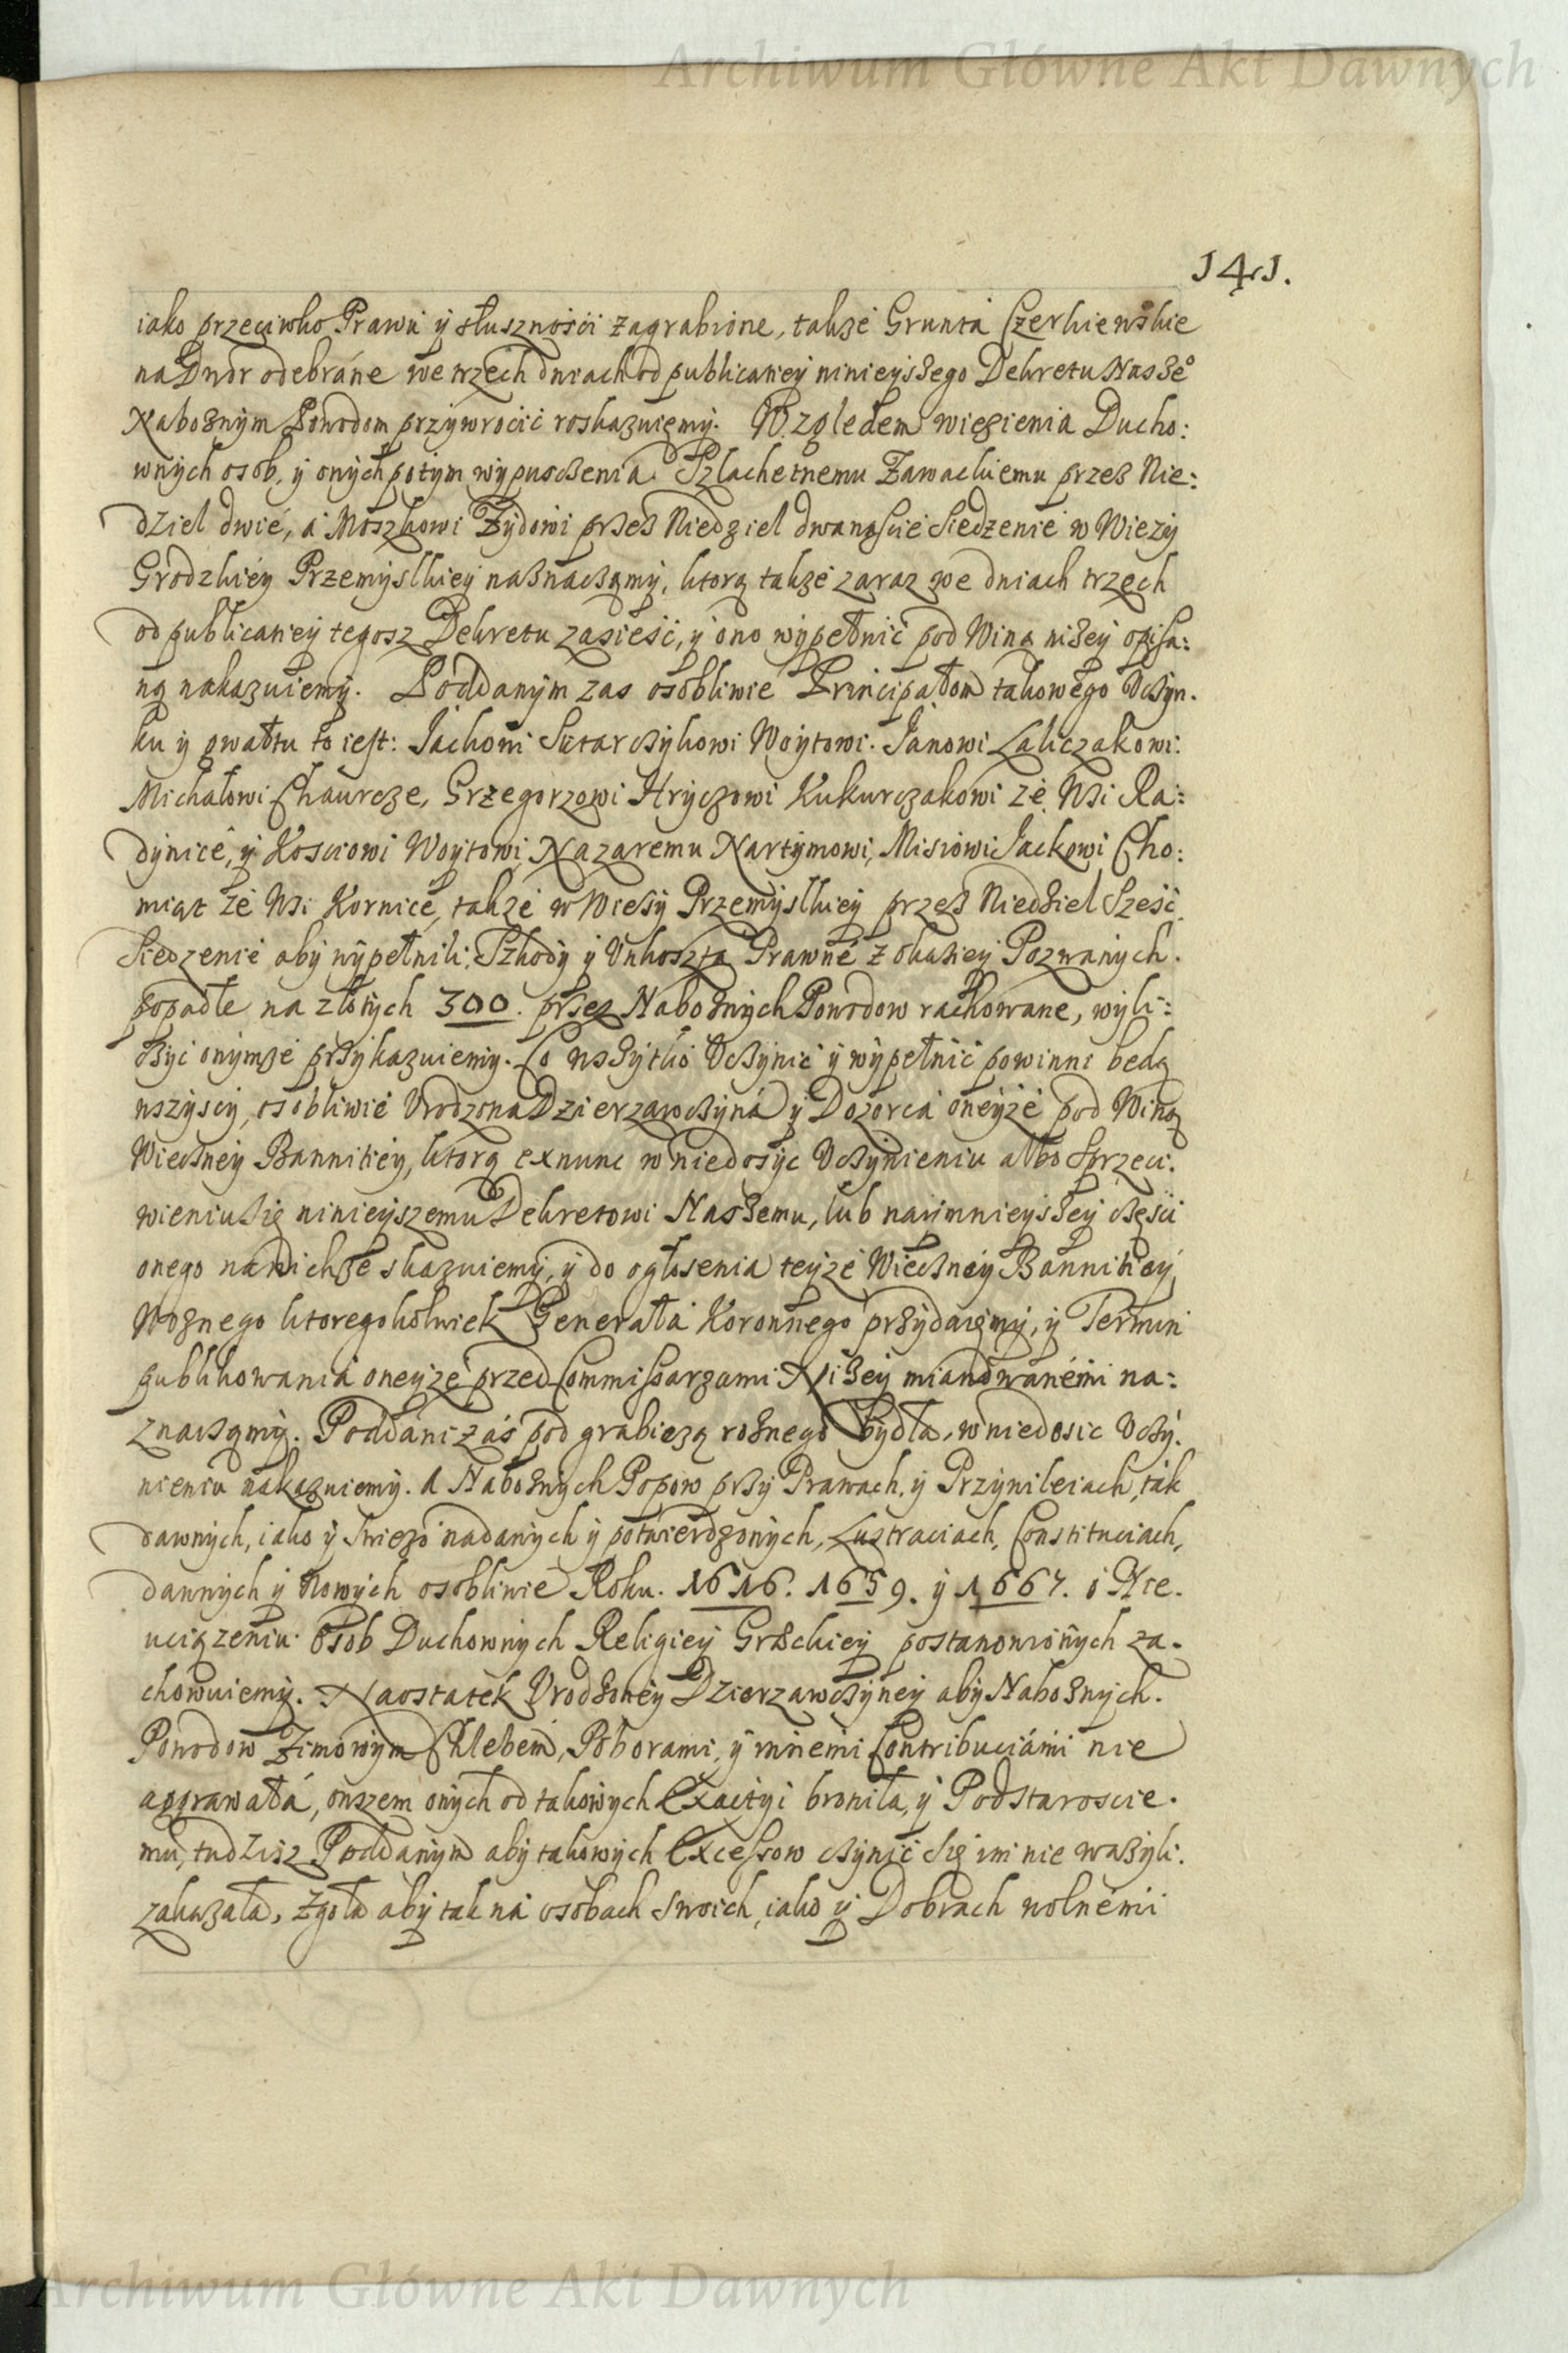 Archiwum Główne Akt Dawnych
141.
iako przeciwko Prawu ÿ słusznosci zagrabione, takze Grunta Czerkiewskie
na Dwor odebrane we trzech dniach od publicatiey ninieyszego Dekretu Nasze°
Naboznÿm Powodom przÿwrocic roskazuięmÿ. Względem więzienia Ducho:
wnÿch osob, ÿ onÿch potÿm wÿpusczenia Szlachetnemu Zawackiemu przez Nie:
dziel dwie, a Moszkowi Zÿdowi przez Niedziel dwanascie siedzenie w Wiezÿ
Grodzkiey Przemÿslkieÿ naznaczamÿ, ktorą takze zaraz we dniach trzech
od publicatieÿ tegosz Dekretu zasieść, ÿ ono wÿpełnić pod Winą nizeÿ opisa:
ną nakazuiemÿ. Poddanÿm zas osobliwie Principałom takowego Vczÿn.
ku ÿ gwałtu to iest: Jackowi Sutarczÿkowi Woÿtowi. Janowi Laliczakowi:
Michałowi Chaurcze, Grzegorzowi Hrÿczowi Kukurczakowi ze Wsi Ra:
dÿnice, ÿ Kosciowi Woÿtowi, Nazaremu Nartÿmowi, Misiowi Jackowi Cho:
miąt ze Wsi Kornice, takze w Wiezÿ Przemÿslkieÿ przez Niedziel Szesc
siedzenie abÿ wÿpełnili. Szkodÿ ÿ Vnkoszta Prawne z okazieÿ Pozwanÿch.
popadłe na złotÿch 300. przez Naboznÿch Powodow rachowane, wÿli:
czÿć onÿmze przÿkazuiemÿ. Co wszÿtko Vczÿnić ÿ wÿpełnić powinni bedą
wszÿscÿ, osobliwie Vrodzona Dzierzawczÿna ÿ Dozorca oneÿze pod Winą
Wiecżneÿ Bannitieÿ, ktorą exnunc w niedosÿc Vczÿnieniu albo Sprzeci.
wieniu się ninieÿszemu Dekretowi Naszemu, lub naÿmnieÿszeÿ części
onego na nichze skazuiemÿ, ÿ do ogłosenia teÿze Wieczneÿ Bannitieÿ
Woznego ktoregokolwiek Generała Koronnego przÿdaięmÿ, ÿ Termin
publikowania oneÿze przed Commissarzami Nizeÿ mianowanemi na:
znaczamÿ. Poddani zas pod grabieżą roznego bÿdła, w niedosic Vczÿ.
nieniu nakazuiemÿ. A Naboznÿch Popow przÿ Prawach, ÿ Przÿwileiach, tak
dawnÿch, iako ÿ swiezo nadanÿch ÿ potwierdzonÿch, Lustraciach, Constituciach,
dawnÿch ÿ nowÿch osobliwie Roku. 1616. 1659. ÿ 1667. o Nie.
uciązeniu Osob Duchownÿch Religieÿ Grzckieÿ postanowionÿch za.
chowuiemÿ. Naostatek Vrodzoneÿ Dzierzawczÿneÿ abÿ Naboznÿch.
Powodow Zimowÿm Chlebem, Poborami, ÿ innemi Contribuciami nie
aggrawała, owszem onÿch od takowÿch Exactÿi broniła, ÿ Podstaroscie.
mu, tudziesz Poddanÿm abÿ takowÿch Excessow czÿnić się im nie wazÿli.
zakazała, zgoła abÿ tak na osobach swoich, iako ÿ Dobrach wolnemi
Archiwum Główne Akt Dawnych